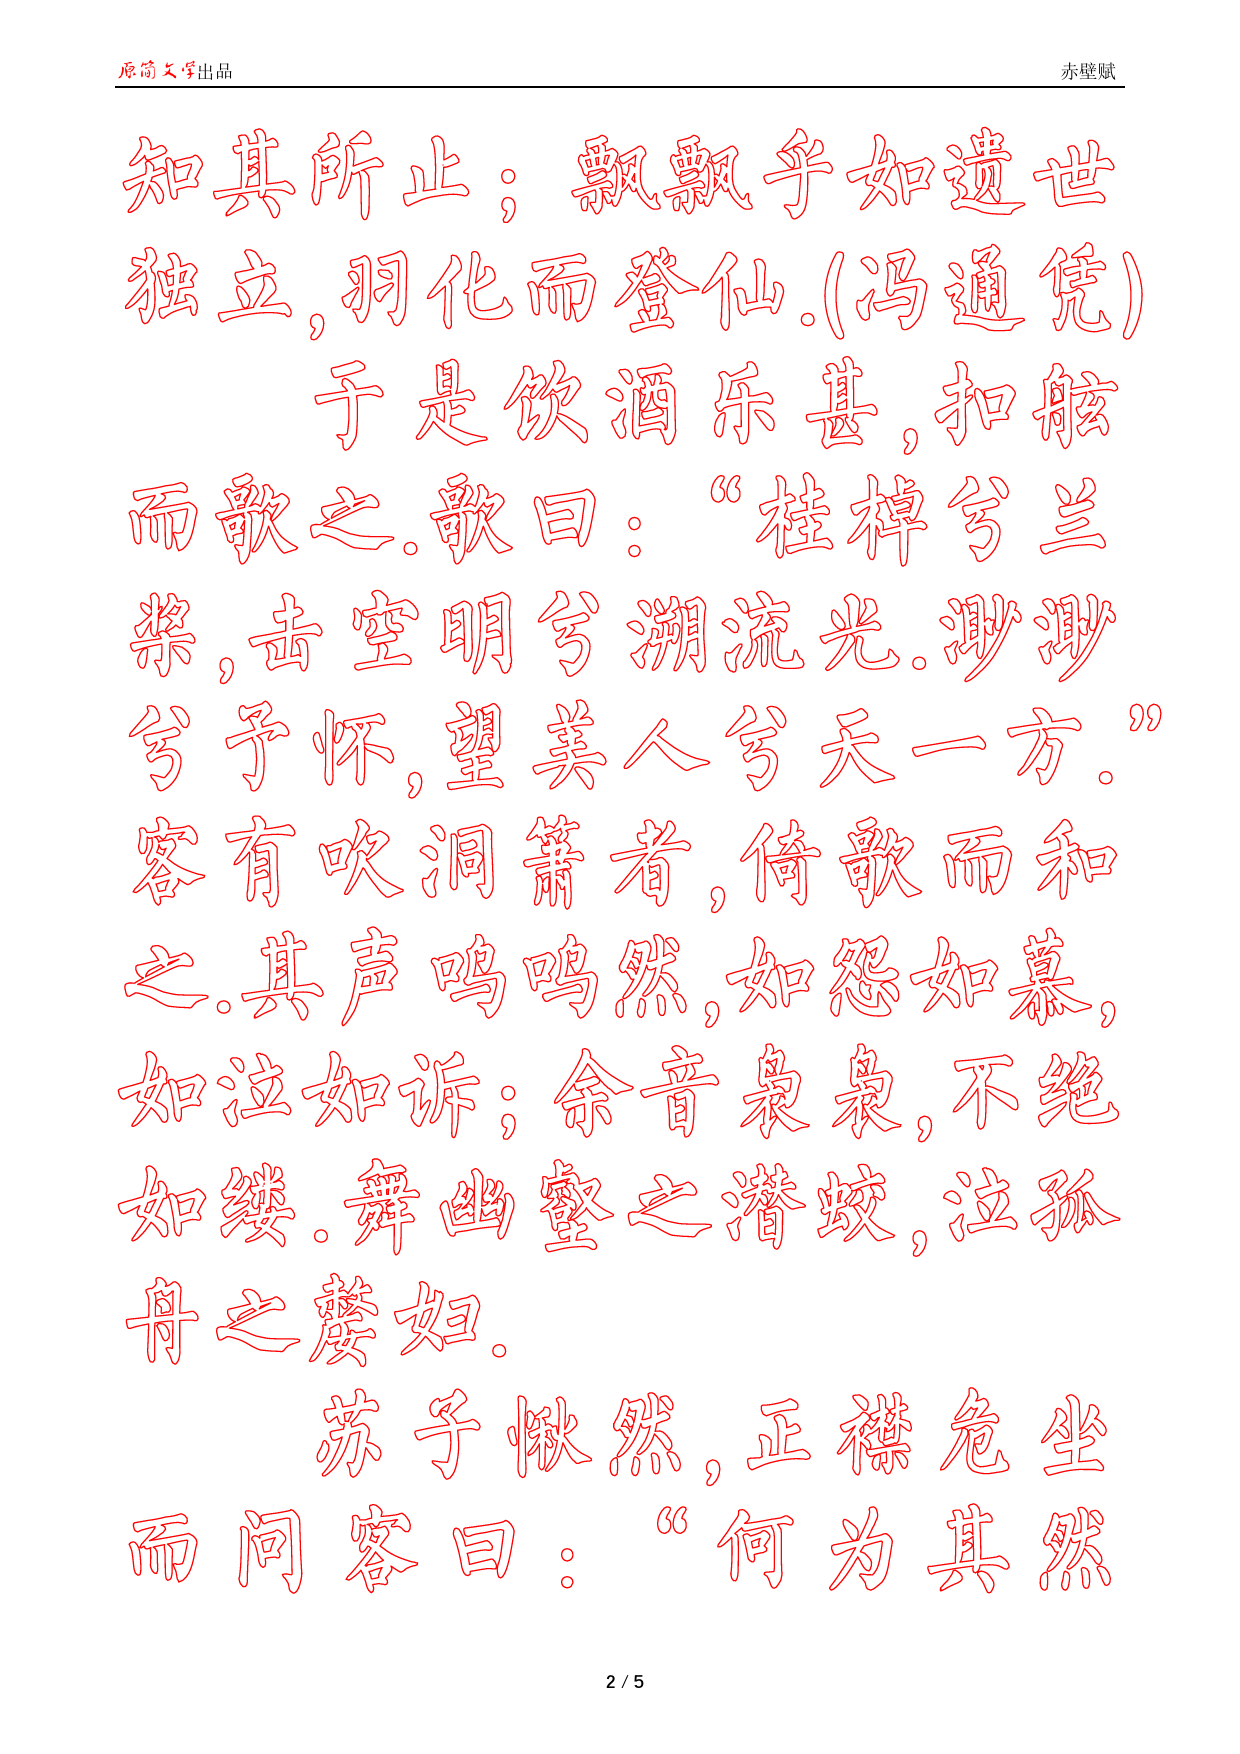 原简文学出品 赤壁赋
知其所止；飘飘乎如遗世
独立,羽化而登仙.(冯通凭)
于是饮酒乐甚,扣舷
而歌之.歌曰：“桂棹兮兰
桨,击空明兮溯流光.渺渺
兮予怀,望美人兮天一方.”
客有吹洞箫者,倚歌而和
之.其声呜呜然,如怨如慕,
如泣如诉；余音袅袅,不绝
如缕.舞幽壑之潜蛟,泣孤
舟之嫠妇.
苏子愀然,正襟危坐
而问客曰：“何为其然
2 / 5